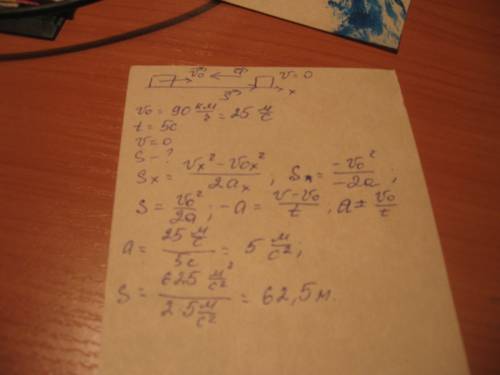 v₀ a v=0
S x
v₀ = 90 км/ч = 25 м/с
t = 5с
v=0
S - ?
Sx = (vx² - v₀x²)/(2ax) ; Sx = (-v₀²)/(-2a) ;
S = v₀²/(2a) ; -a = (v - v₀)/t , a = v₀/t
a = (25 м/с)/(5с) = 5 м/с² ;
S = (625 м²/с²)/(2·5 м/с²) = 62,5 м.